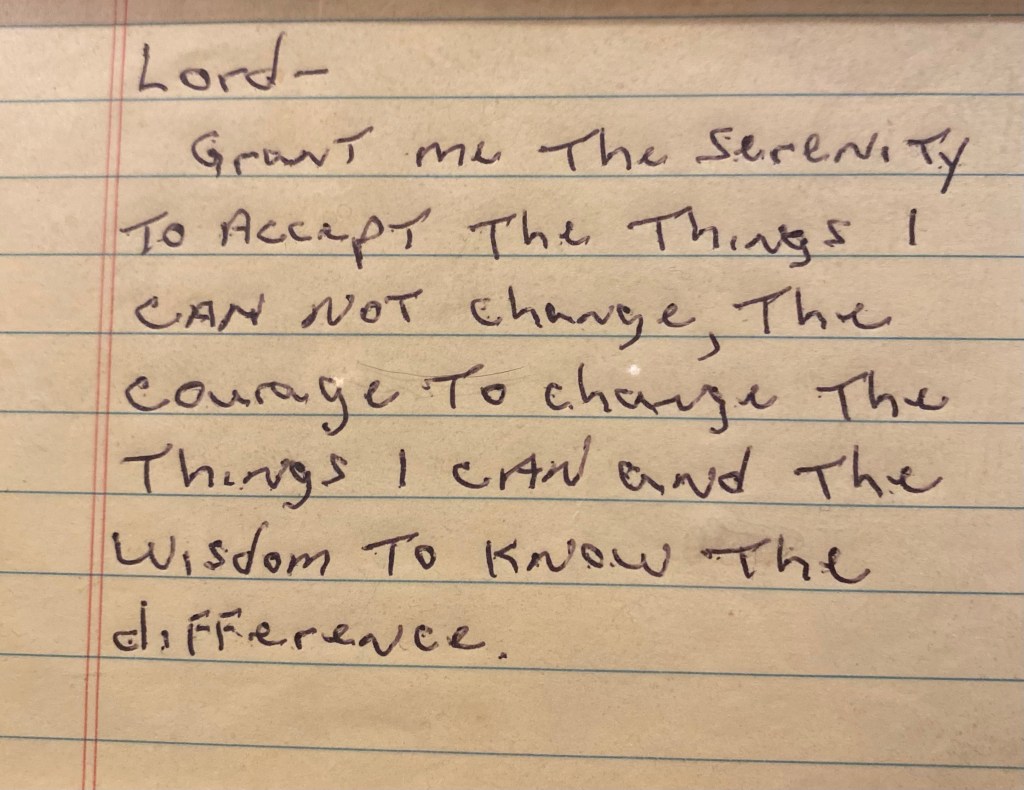 Lord-
Grant me The SereNiTy
To Accept The Things I
CAN NOT change, The
courage To change The
Things I CAN and The
Wisdom To KNow The
diFFerence.